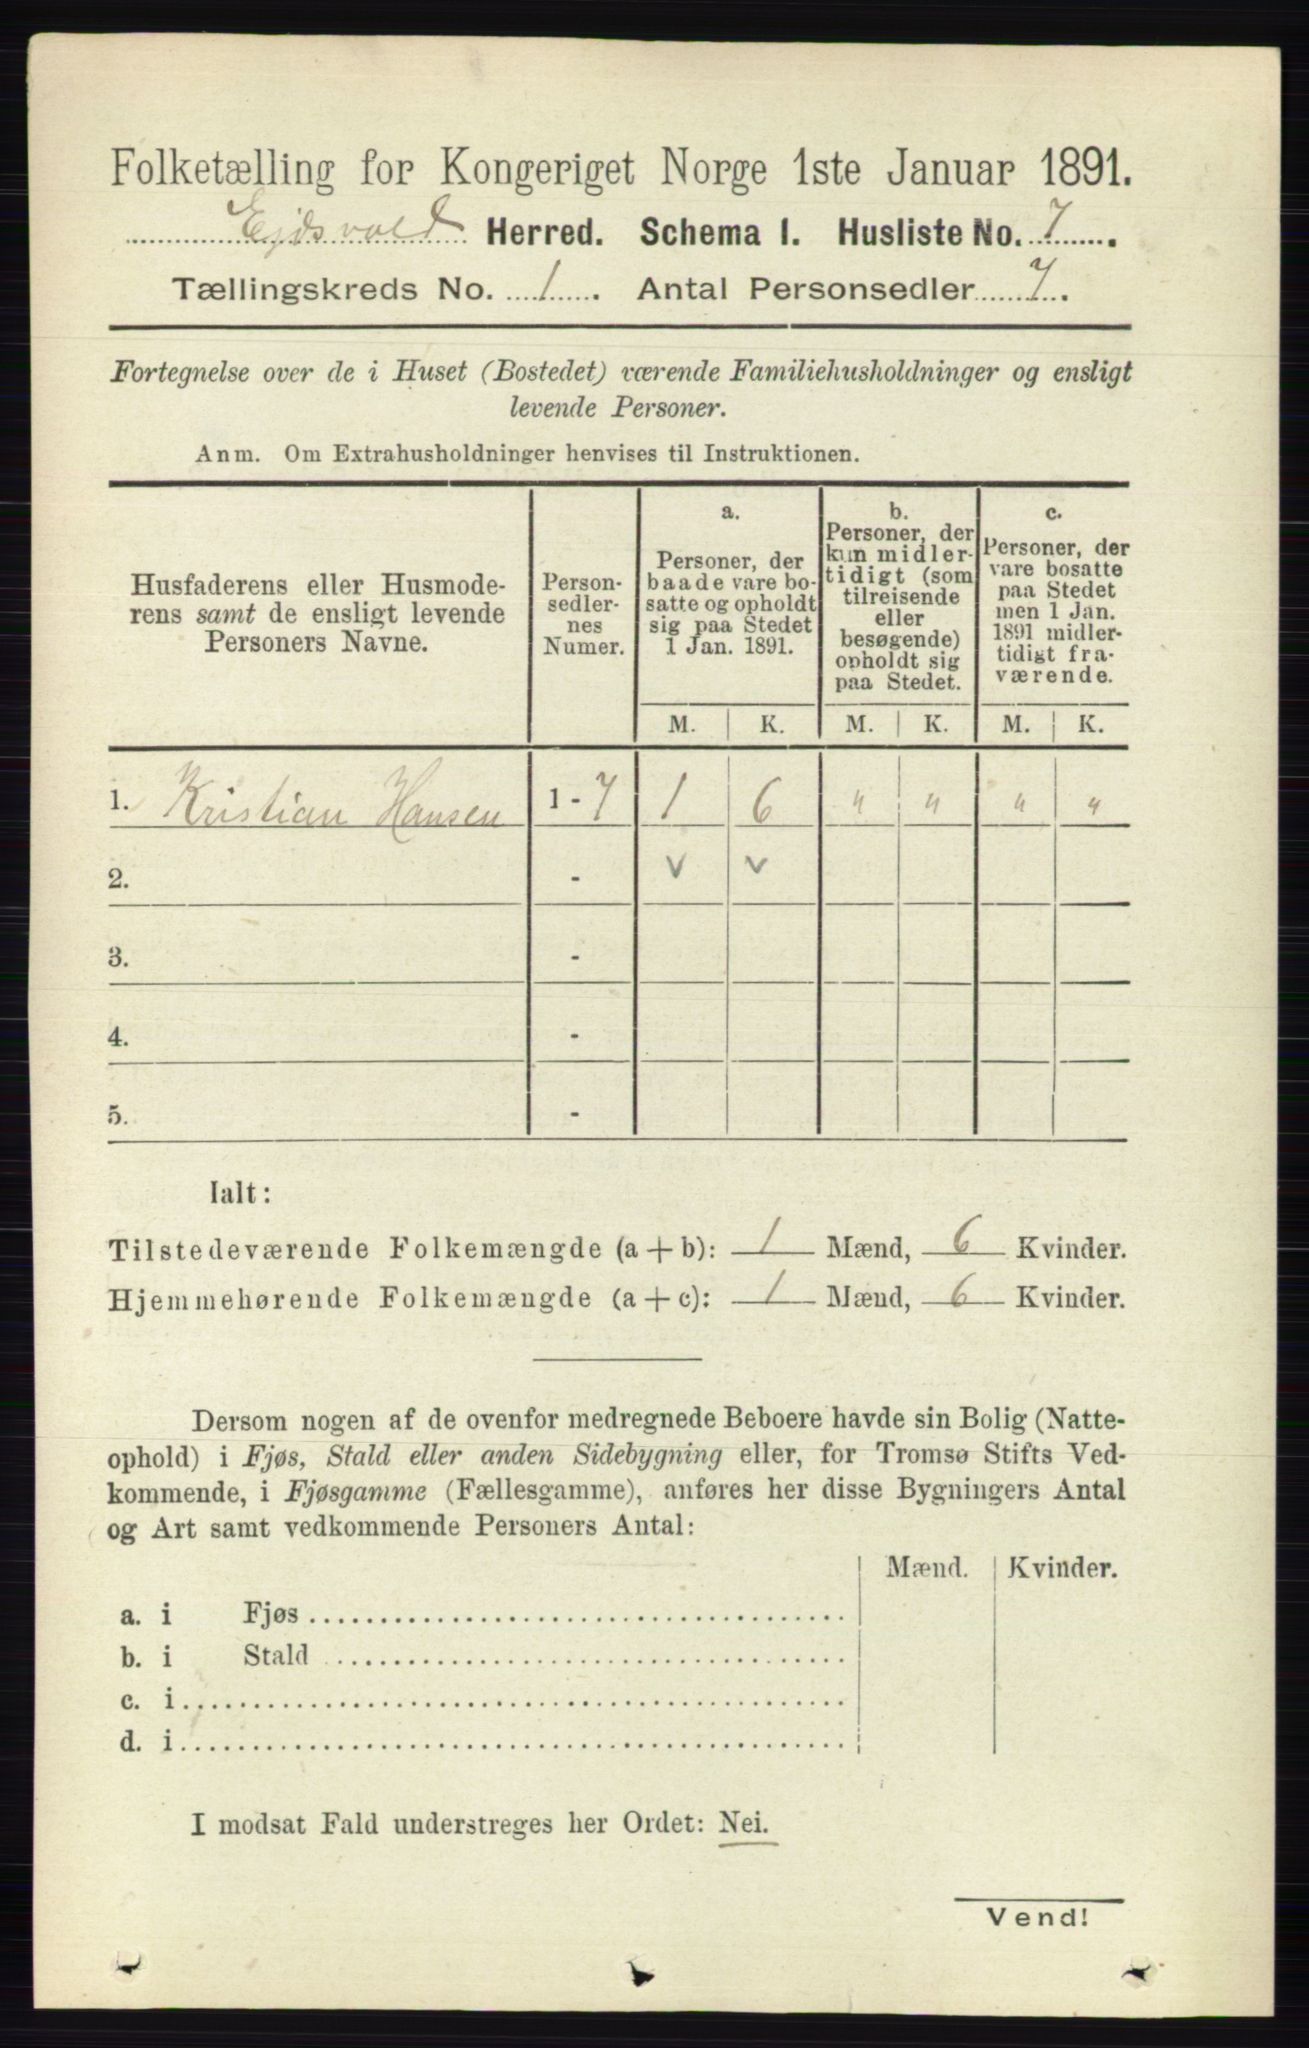 Folketælling for Kongeriget Norge 1ste Januar 1891.
Ejdsvold Herred. Schema I. Husliste No. 7.
Tællingskreds No. 1. Antal Personsedler 7.
Fortegnelse over de i Huset (Bostedet) værende Familiehusholdninger og ensligt
levende Personer.
Anm. Om Extrahusholdninger henvises til Instruktionen.
Husfaderens eller Husmode-
rens samt de ensligt levende
Personers Navne.
Person-
sedler-
nes
Numer.
a.
Personer, der
baade vare bo-
satte og opholdt
sig paa Stedet
1 Jan. 1891.
b.
Personer, der
kun midler-
tidigt (som
tilreisende
eller
besøgende)
opholdt sig
paa Stedet.
c.
Personer, der
vare bosatte
paa Stedet
men 1 Jan.
1891 midler-
tidigt fra-
værende.
M. K. M. K. M. K.
1. Kristian Hansen 1 - 7 1 6 " " " "
2. - v v
3. -
4. -
5. -
Ialt:
Tilstedeværende Folkemængde (a + b): 1 Mænd, 6 Kvinder.
Hjemmehørende Folkemængde (a + c): 1 Mænd, 6 Kvinder.
Dersom nogen af de ovenfor medregnede Beboere havde sin Bolig (Natte-
ophold) i Fjøs, Stald eller anden Sidebygning eller, for Tromsø Stifts Ved-
kommende, i Fjøsgamme (Fællesgamme), anføres her disse Bygningers Antal
og Art samt vedkommende Personers Antal:
Mænd. Kvinder.
a. i Fjøs
b. i Stald
c. i
d. i
I modsat Fald understreges her Ordet: Nei.
Vend!